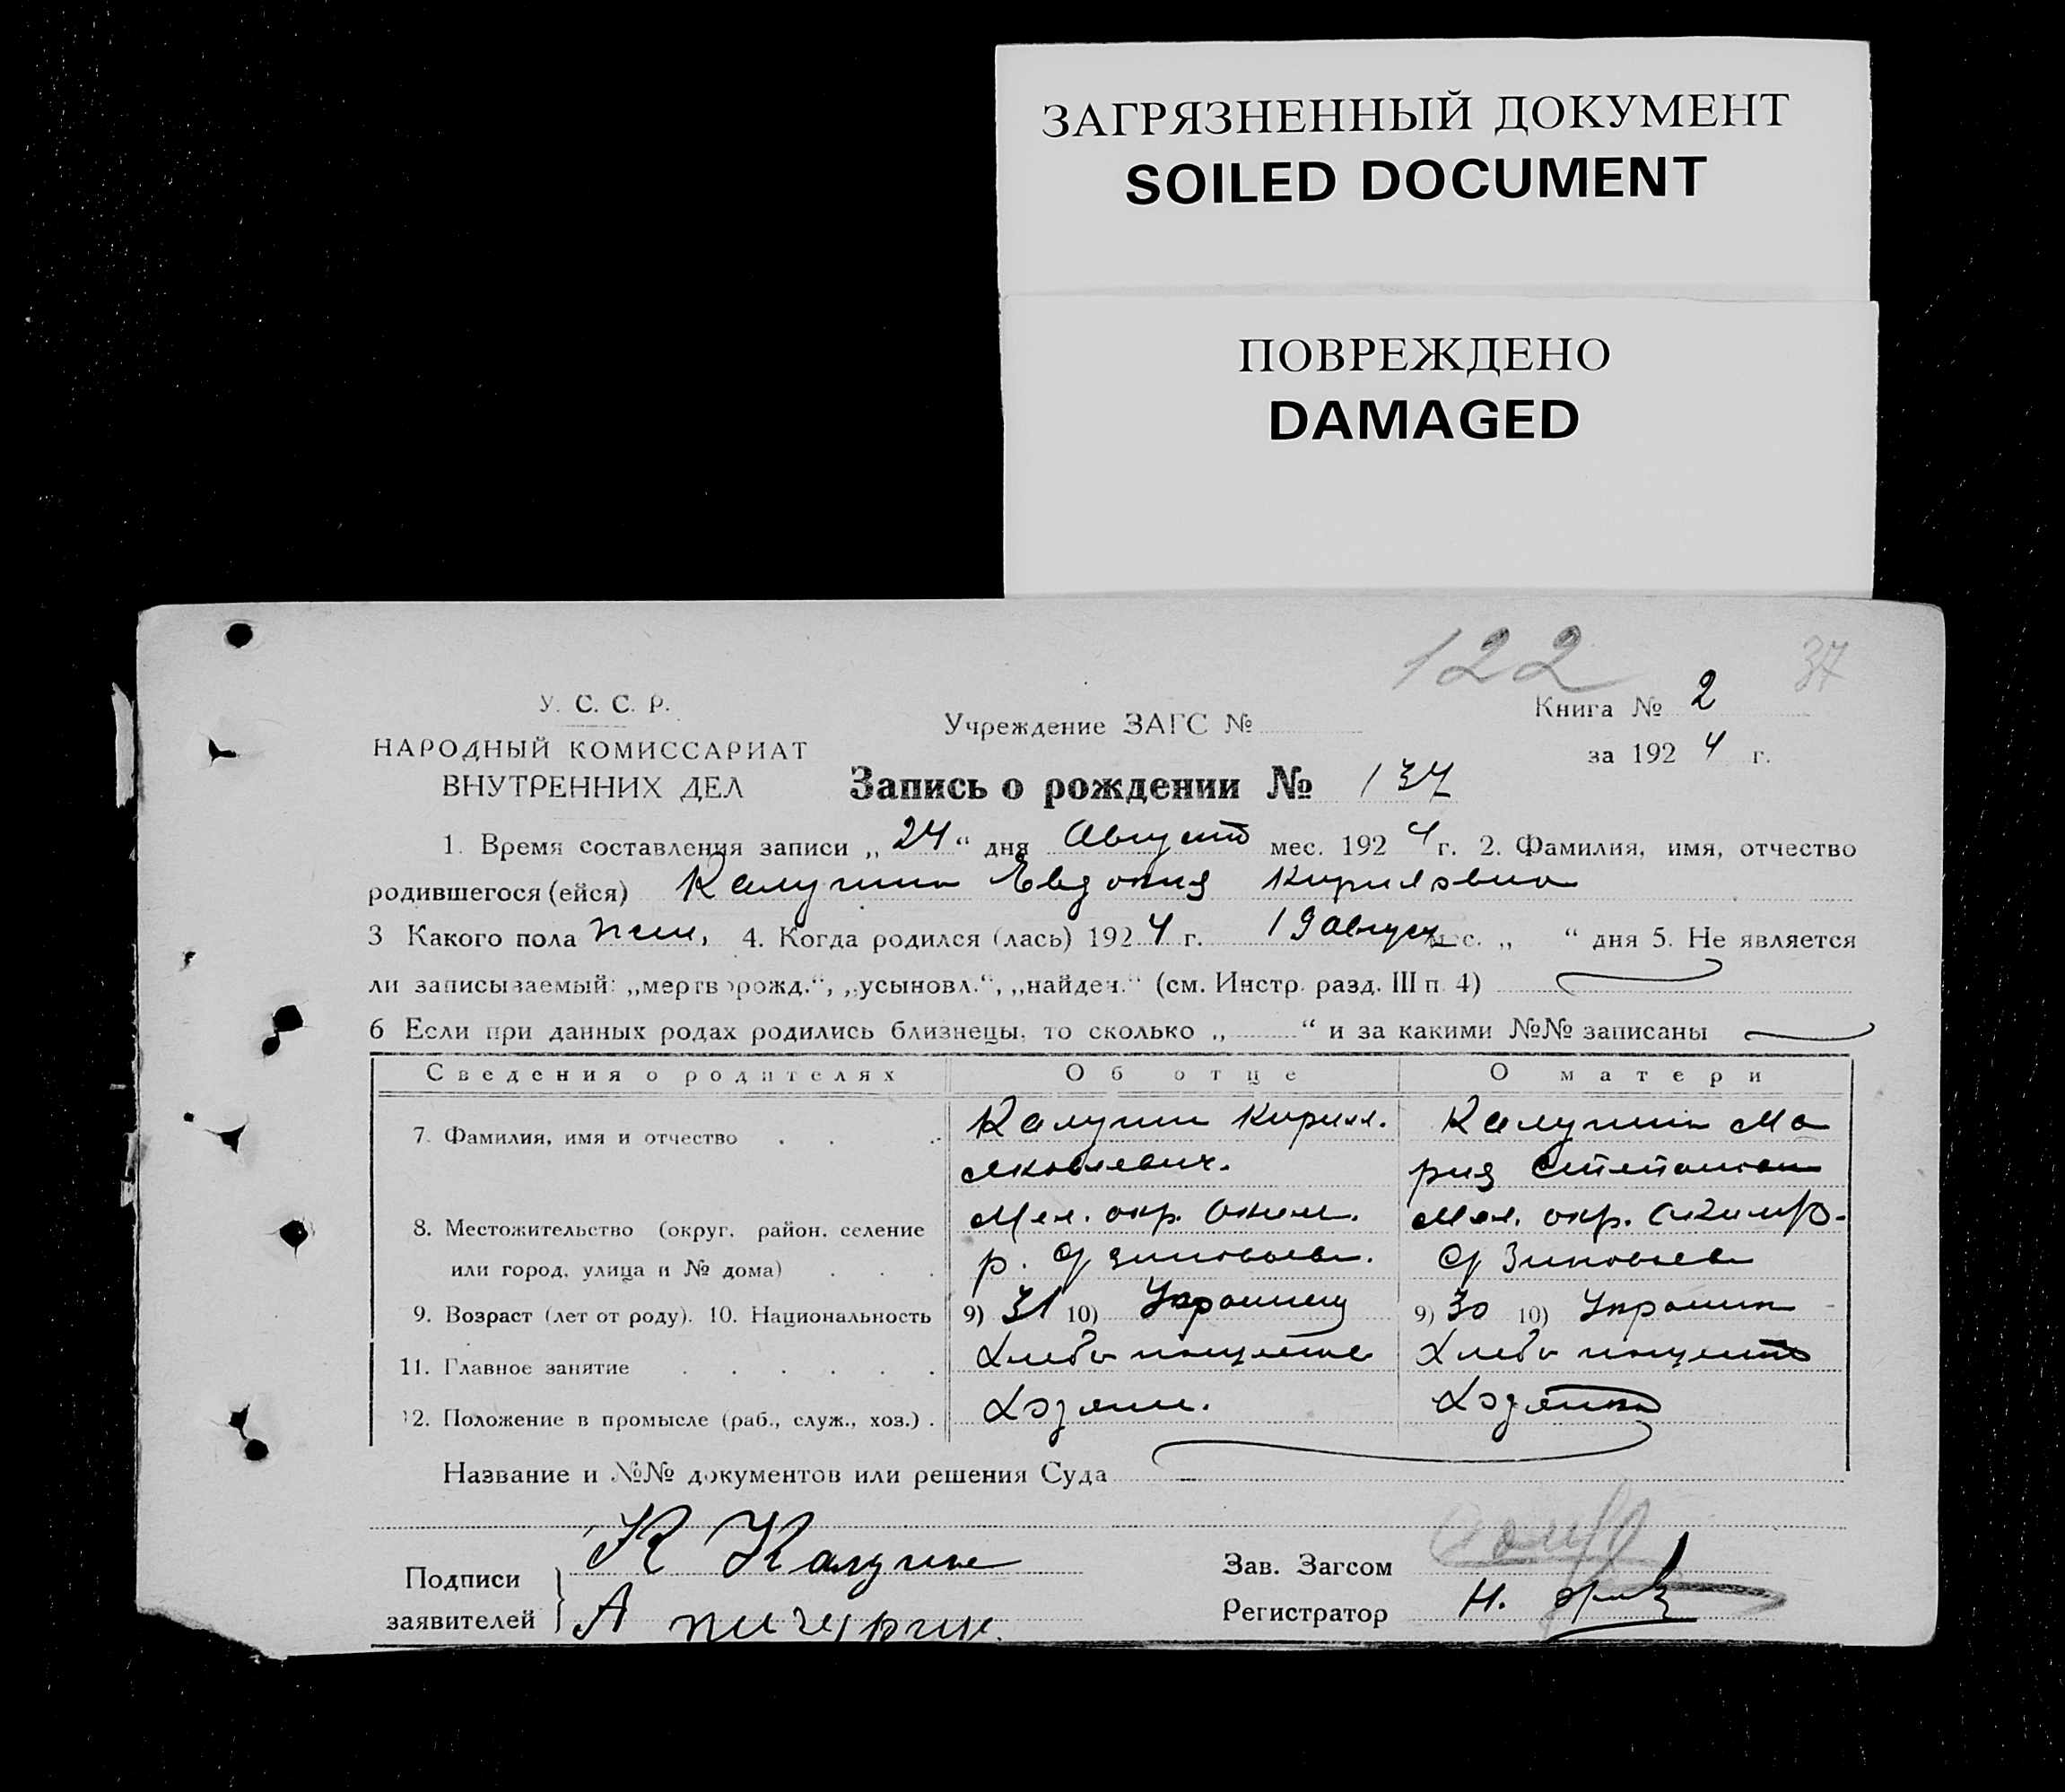 ЗАГРЯЗНЕННЫЙ ДОКУМЕНТ
SOILED DOCUMENT
ПОВРЕЖДЕНО
DAMAGED
122 37
У. С. С. Р.
НАРОДНЫЙ КОМИССАРИАТ
ВНУТРЕННИХ ДЕЛ
Учреждение ЗАГС №
Книга № 2
за 1924 г.
Запись о рождении № 137
1. Время составления записи „24“ дня Август мес. 1924 г. 2. Фамилия, имя, отчество
родившегося (ейся) Калугина Евдокия Кириловна
3 Какого пола жен. 4. Когда родился (лась) 1924 г. 19 август мес. „ “ дня 5. Не является
ли записываемый: „мертворожд.“, „усыновл.“, „найден.“ (см. Инстр. разд. III п 4)
6 Если при данных родах родились близнецы, то сколько „ “ и за какими №№ записаны
Сведения о родителях Об отце О матери
7. Фамилия, имя и отчество Калугин Кирилл. Калугина Ма
Яковлевич. рия Степанов
8. Местожительство (округ, район, селение Мел. окр. Аким. Мел. окр. Акимр.
или город, улица и № дома) р. с Зиновьев. с Зиновьев
9. Возраст (лет от роду). 10. Национальность 9) 31 10) Украинец 9) 30 10) Украин
11. Главное занятие Хлебопашество Хлебопашеств
12. Положение в промысле (раб., служ., хоз.) . Хозяин. Хозяйка
Название и №№ документов или решения Суда
Подписи
заявителей
К Калугин
А
Зав. Загсом
Регистратор Н.